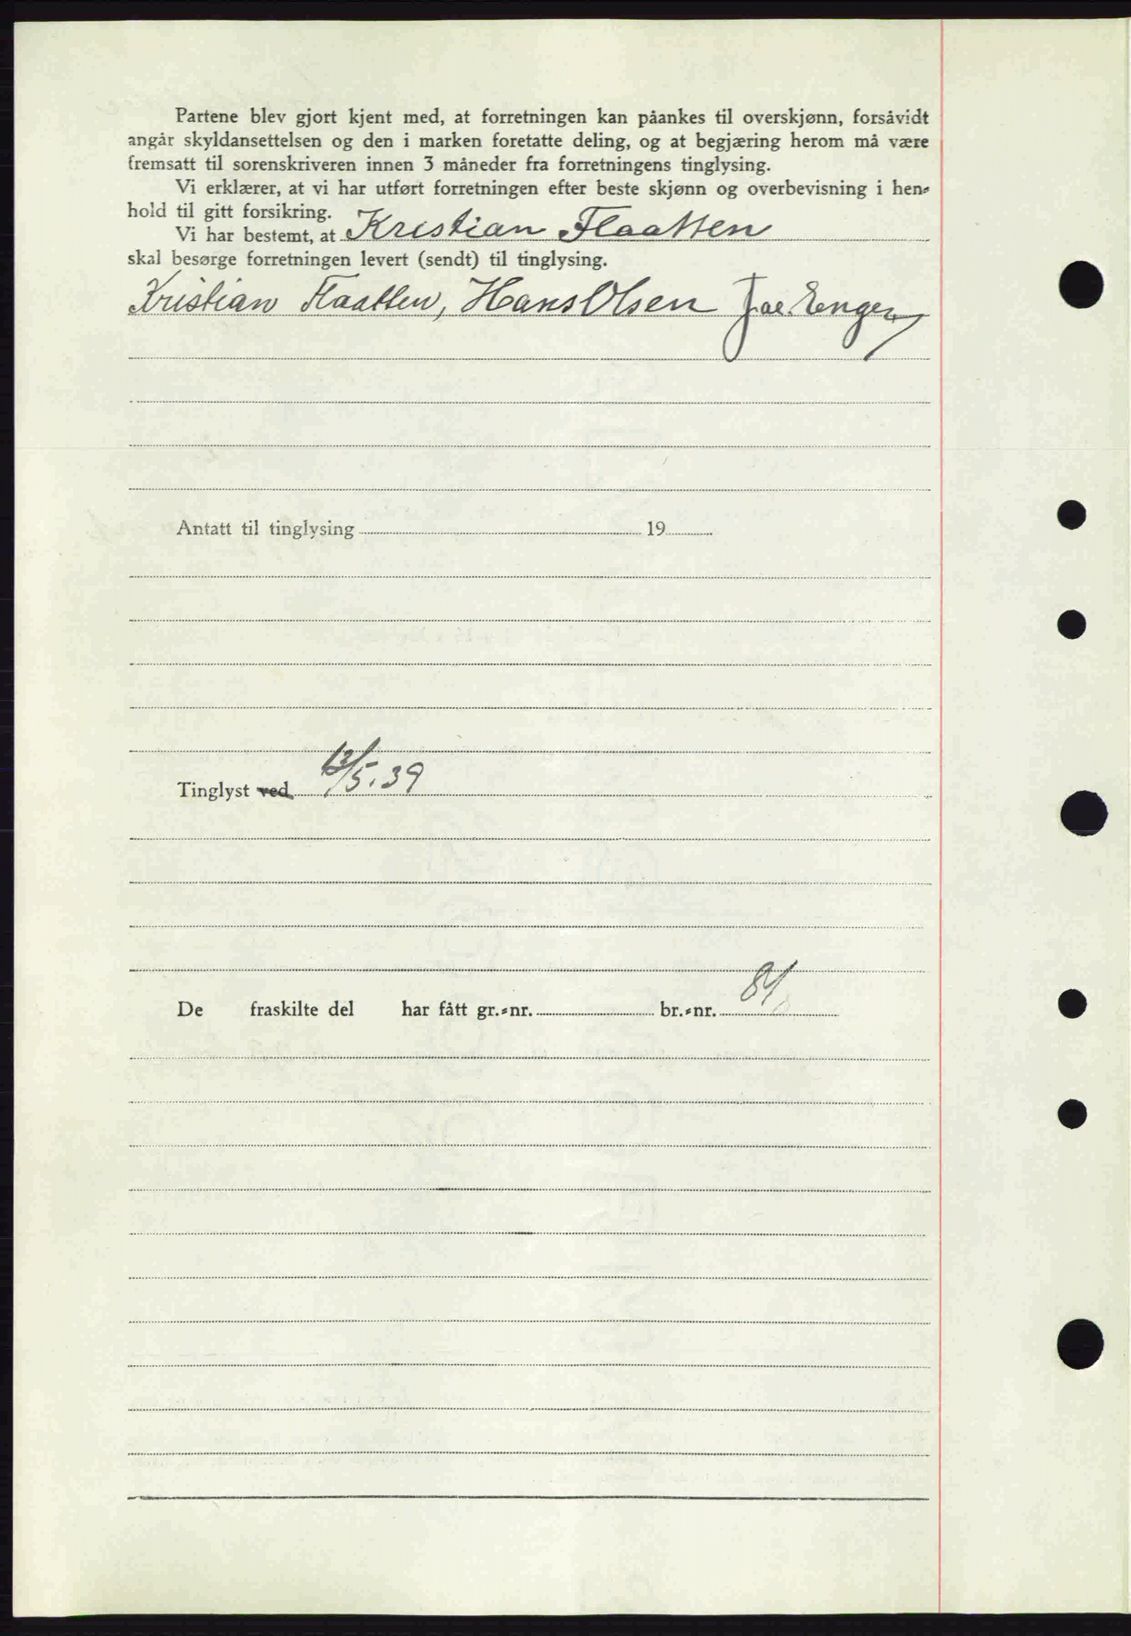 Partene blev gjort kjent med, at forretningen kan påankes til overskjønn, forsåvidt
angår skyldansettelsen og den i marken foretatte deling, og at begjæring herom må være
fremsatt til sorenskriveren innen 3 måneder fra forretningens tinglysing.
Vi erklærer, at vi har utført forretningen efter beste skjønn og overbevisning i hen-
hold til gitt forsikring.
Vi har bestemt, at Kristian Flaatten
skal besørge forretningen levert (sendt) til tinglysing.
Kristian Flaatten, Hans Olsen Enger
Antatt til tinglysing 19
Tinglyst ved 12/5.39
De fraskilte del har fått gr.-nr. br.-nr. 84